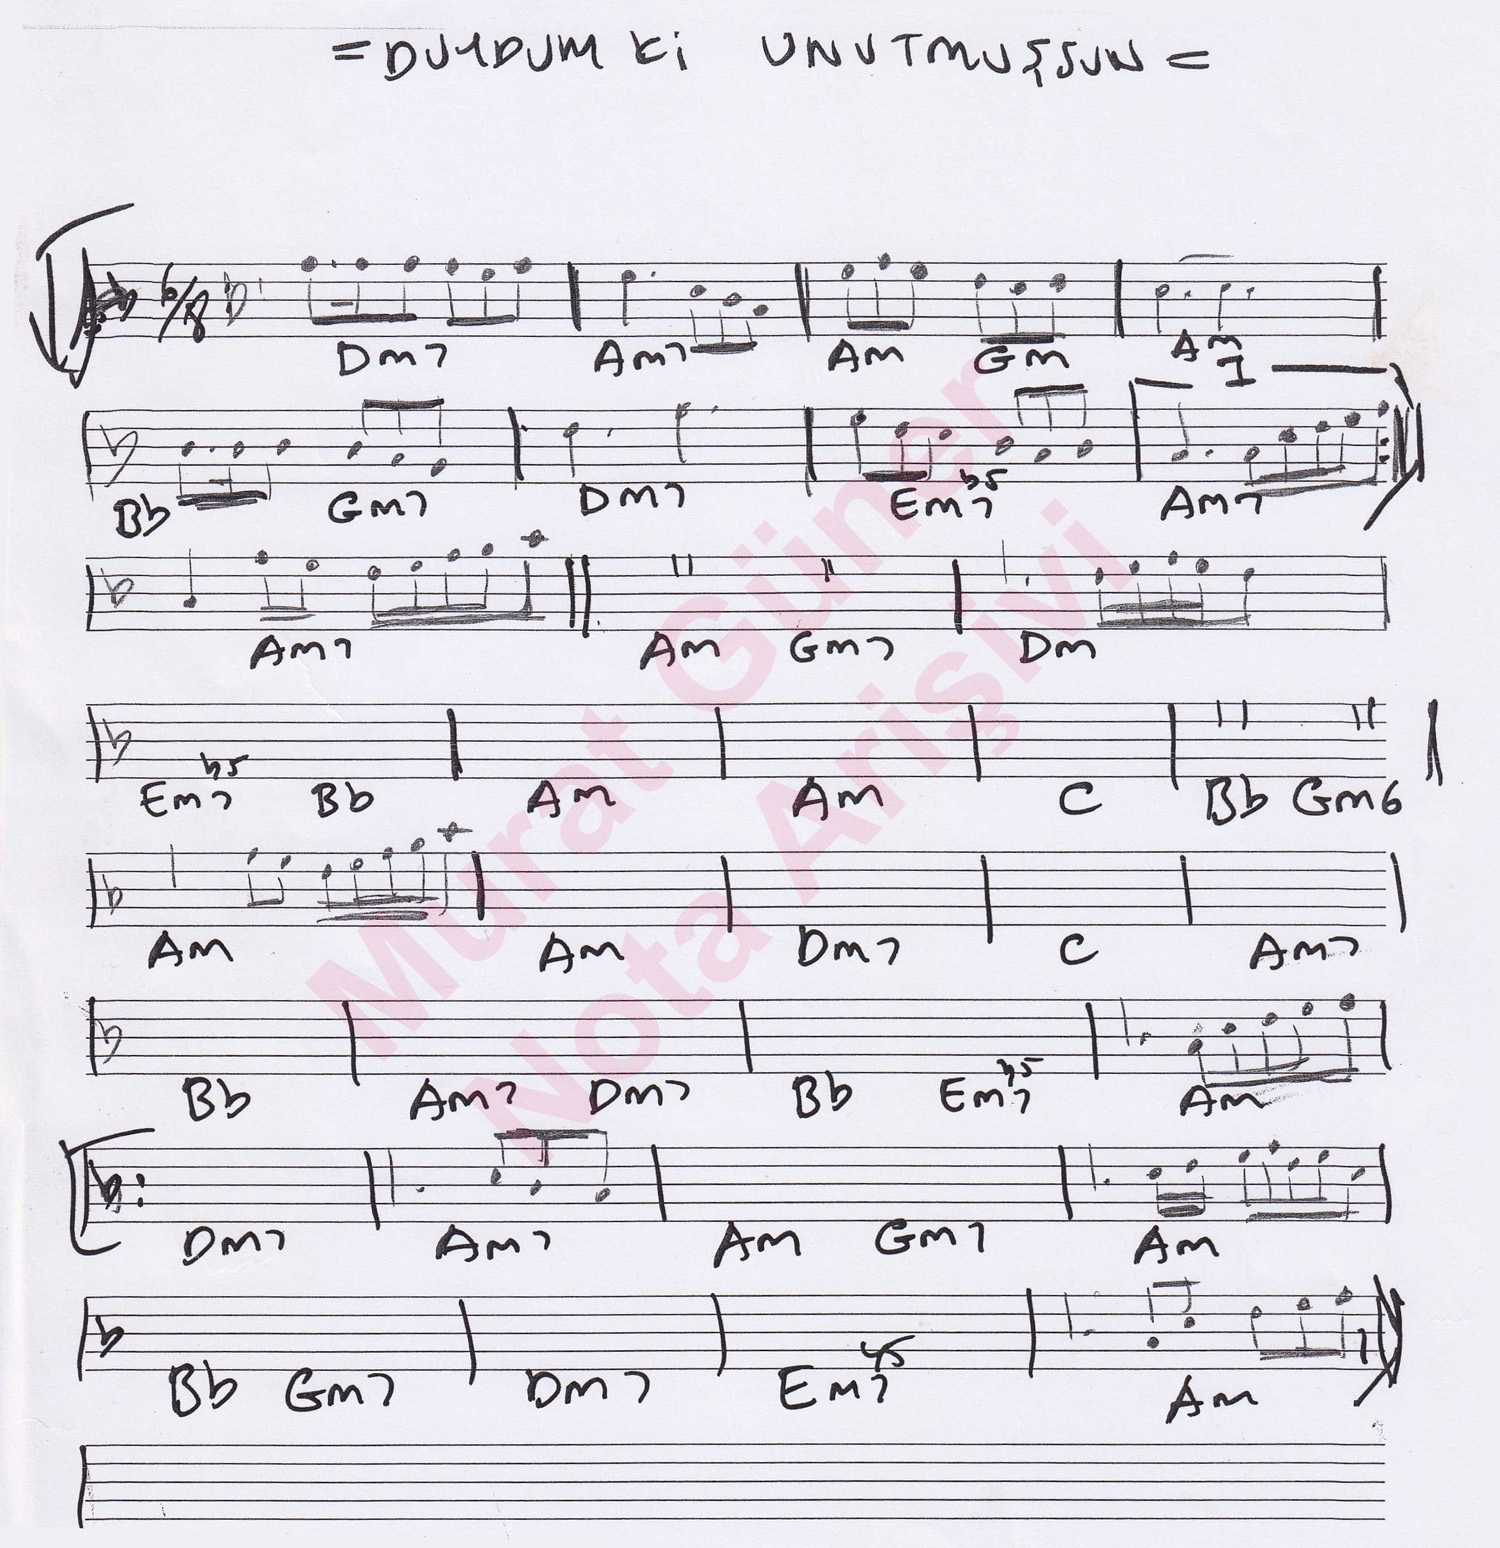 = DUYDUM Ki UNUTMUŞSUN =
6/8
Dm7 Am7 Am Gm Am
1
Bb Gm7 Dm7 Em7b5 Am7
Am7 Am Gm7 Dm
Em7b5 Bb Am Am C Bb Gm6
Am Am Dm7 C Am7
Bb Am7 Dm7 Bb Em7b5 Am
Dm7 Am7 Am Gm7 Am
Bb Gm7 Dm7 Em7b5 Am
Murat Güner
Nota Arişivi